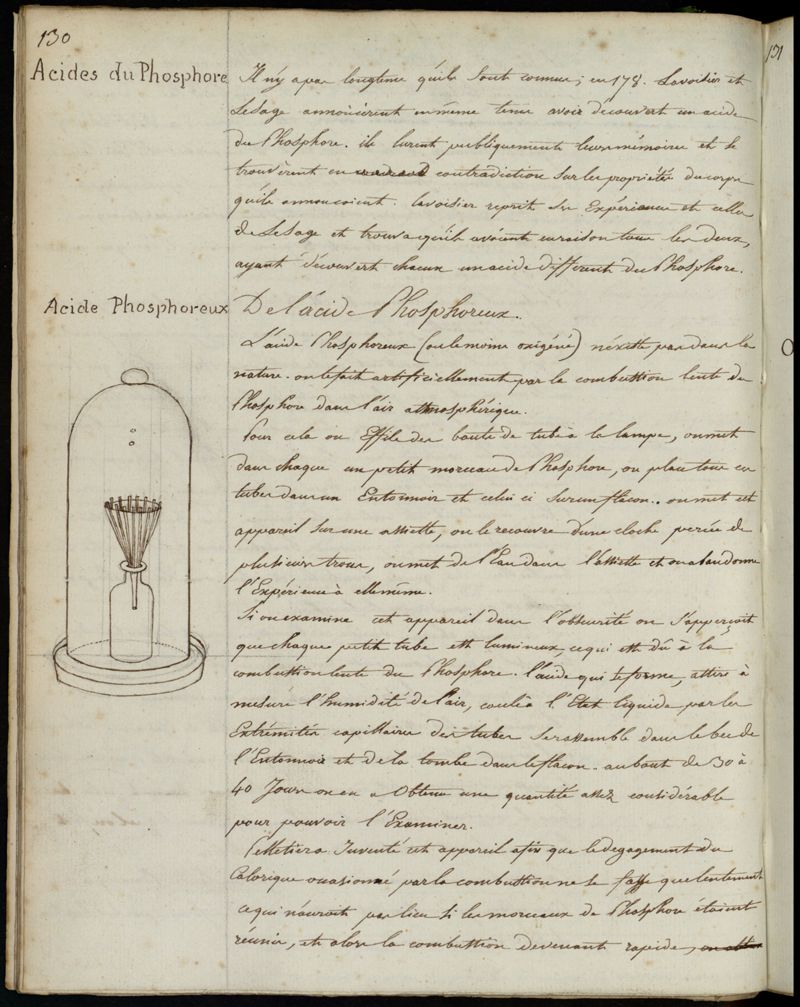 130
131
Acides du Phosphore
Il n'y a pas longtems qu'ils sont connus; en 178. Lavoisier et
LeSage annoncèrent en même tems avoir découvert un acide
du Phosphore. ils lurent publiquement leurs mémoires et se
trouvèrent en contradiction sur les propriétés du corps
qu'ils annoncoient. Lavoisier reprit ses Expériences et celles
de LeSage et trouva qu'ils avoient eu raison tous les deux,
ayant découvert chacun un acide different du Phosphore.
Acide Phosphoreux
De l'acide Phosphoreux.
L'acide Phosphoreux (ou le moins oxigéné) n'existe pas dans la
nature. on le fait artificiellement par la combustion lente du
Phosphore dans l'air atmosphérique.
Pour cela on Effile des bouts de tubes à la lampe, on met
dans chaque un petit morceau de Phosphore, on place tous ces
tubes dans un Entonnoir et celui ci sur un flacon.. on met cet
appareil sur une assiette, on le recouvre d'une cloche percée de
plusieurs trous, on met de l'Eau dans l'assiette et on abandonne
l'Expérience à elle même.
Si on examine cet appareil dans l'obscurité on s'apperçoit
que chaque petit tube est lumineux, ce qui est dû à la
combustion lente du Phosphore. l'acide qui se forme, attire à
mesure l'humidité de l'air, coule à l'Etat liquide par les
Extrémités capillaires des tubes se rassemble dans le bec de
l'Entonnoir et de là tombe dans le flacon. au bout de 30 à
40 Jours on en a Obtenu une quantité assez considérable
pour pouvoir l'Examiner.
Pelletier a Inventé cet appareil afin que le degagement du
Calorique occasionné par la combustion ne se fasse que lentement
ce qui n'auroit pas lieu si les morceaux de Phosphore étoient
réunis, et alors la combustion devenant rapide,